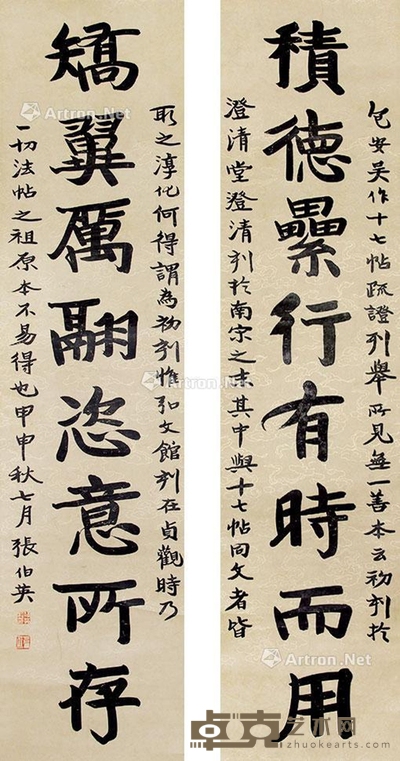 積德纍行有時而用
包安吳作十七帖疏證列舉所見無一善本云初刻於
澄清堂澄清刻於南宗之末其中與十七帖同文者皆
矯翼厲翮恣意所存
取之淳化何得謂為初刻惟弘文館刻在貞觀時乃
一切法帖之祖原本不易得也甲申秋七月張伯英
Artron.Net
Artron.Net
Artron.Net
Artron.Net
卓克艺术网
zhuokearts.com